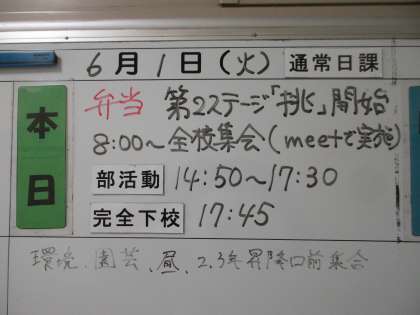 6月1日(火) 通常日課
本日
弁当 第2ステージ「挑」開始
8:00～全校集会(meetで実施)
部活動 14:50～17:30
完全下校 17:45
環境、園芸、昼、2.3年昇降口前集合